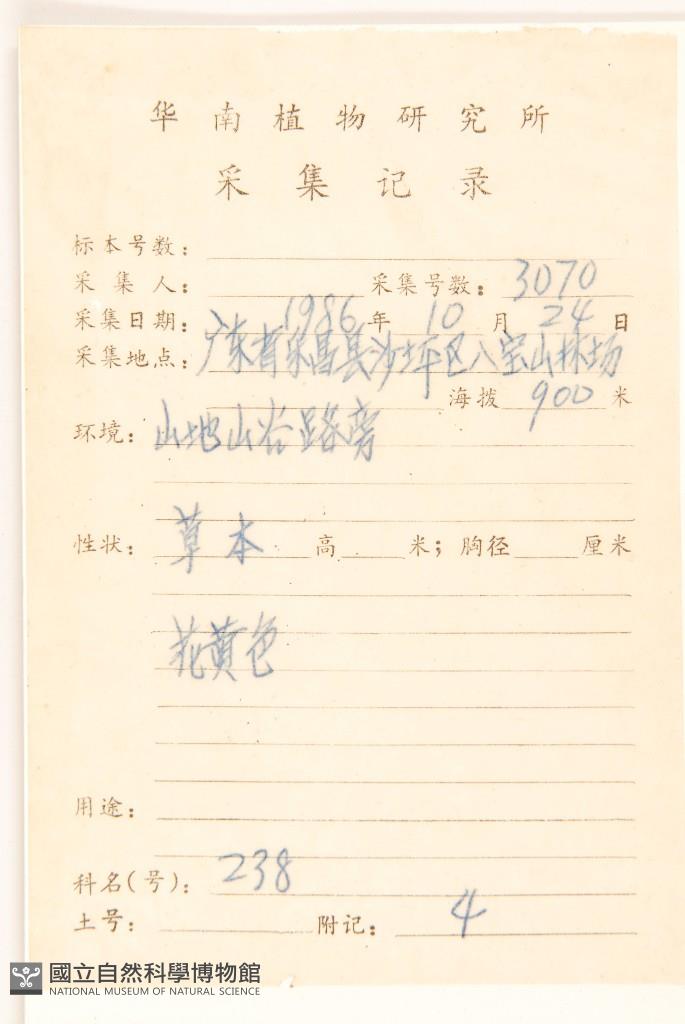 华南植物研究所
采集记录
标本号数：
采集人： 采集号数：3070
采集日期：1986年10月24日
采集地点：广东省乐昌县沙坪区八宝山林场
海拨 900 米
环境：山地山谷路旁
性状：草本 高 米；胸径 厘米
花黄色
用途：
科名(号)：238
土号： 附记：4
國立自然科學博物館
NATIONAL MUSEUM OF NATURAL SCIENCE